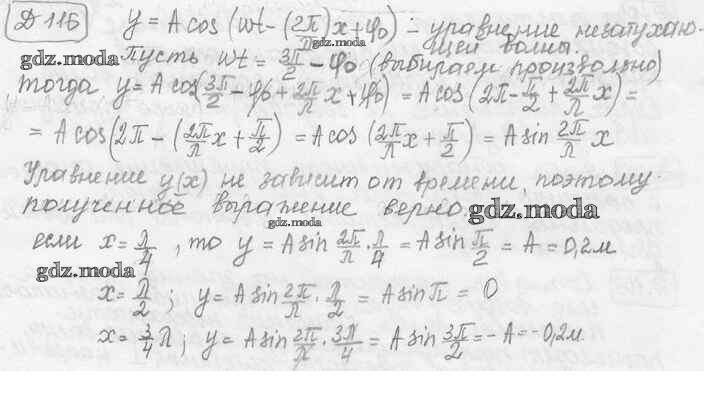 Д 115 y = A cos (ωt - (2π/λ) x + φ₀) - уравнение незатухаю-
щей волны.
gdz.moda Пусть ωt = 3π/2 - φ₀ (выбираем произвольно)
gdz.moda
тогда y = A cos(3π/2 - φ₀ + 2π/λ x + φ₀) = A cos(2π - π/2 + 2π/λ x) =
= A cos(2π - (2π/λ x + π/2) = A cos (2π/λ x + π/2) = A sin 2π/λ x
Уравнение y(x) не зависит от времени, поэтому
полученное выражение верно. gdz.moda
gdz.moda
если x = λ/4, то y = A sin 2π/λ · λ/4 = A sin π/2 = A = 0,2 м
gdz.moda
x = λ/2; y = A sin 2π/λ · λ/2 = A sin π = 0
x = 3/4 λ; y = A sin 2π/λ · 3λ/4 = A sin 3π/2 = -A = -0,2 м